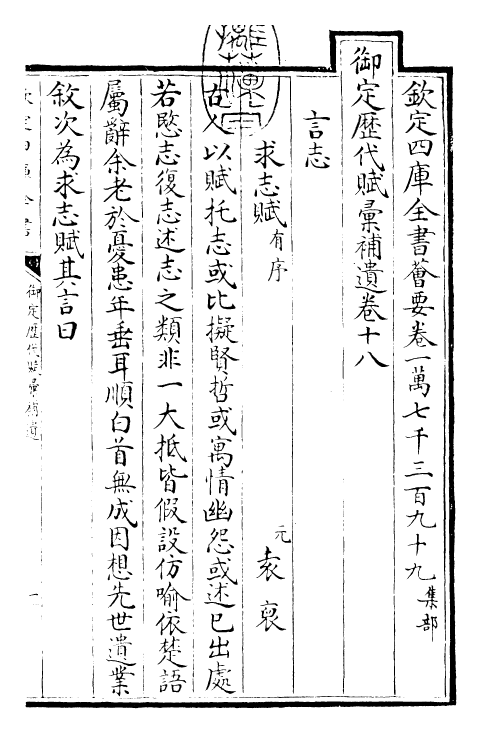 欽定四庫全書薈要卷一萬七千三百九十九 集部
御定歷代賦彙補遺卷十八
言志
求志賦 有序 元 袁裒
古人以賦托志或比擬賢哲或寓情幽怨或述已出處
若愍志復志述志之類非一大抵皆假設仿喻依楚語
屬辭余老於憂患年垂耳順白首無成因想先世遺業
敘次為求志賦其言曰
欽定四庫全書
御定歷代賦彙補遺
一